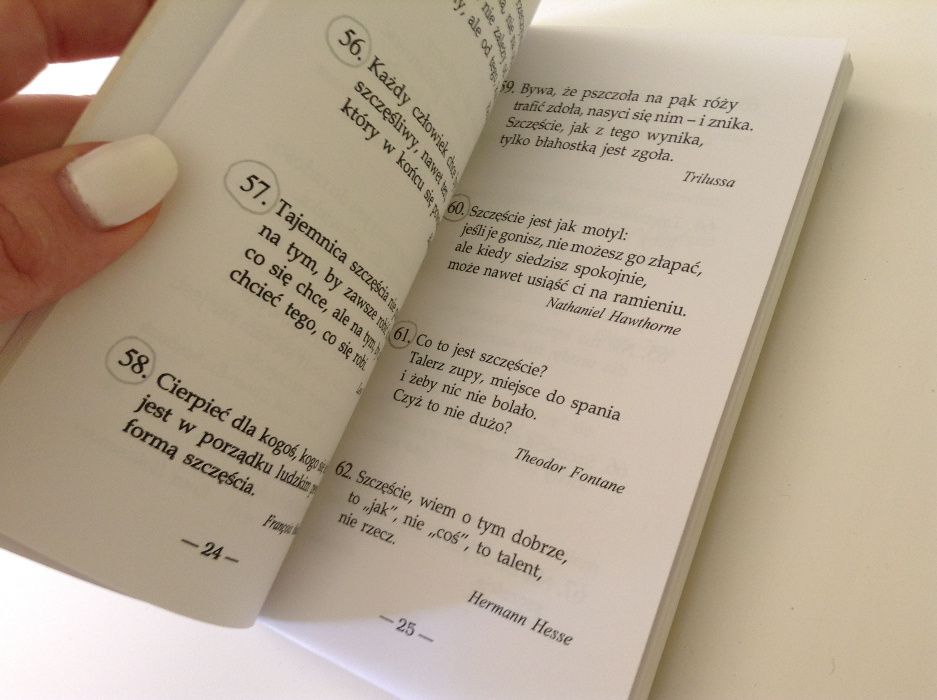 y, ale od tego
56. Każdy człowiek chce
szczęśliwy, nawet ten
który w końcu się
57. Tajemnica szczęścia nie
na tym, by zawsze robić
co się chce, ale na tym, by
chcieć tego, co się robi.
58. Cierpieć dla kogoś, kogo się
jest w porządku ludzkim
formą szczęścia.
François
— 24 —
59. Bywa, że pszczoła na pąk róży
trafić zdoła, nasyci się nim – i znika.
Szczęście, jak z tego wynika,
tylko błahostką jest zgoła.
Trilussa
60. Szczęście jest jak motyl:
jeśli je gonisz, nie możesz go złapać,
ale kiedy siedzisz spokojnie,
może nawet usiąść ci na ramieniu.
Nathaniel Hawthorne
61. Co to jest szczęście?
Talerz zupy, miejsce do spania
i żeby nic nie bolało.
Czyż to nie dużo?
Theodor Fontane
62. Szczęście, wiem o tym dobrze,
to „jak”, nie „coś”, to talent,
nie rzecz.
Hermann Hesse
— 25 —